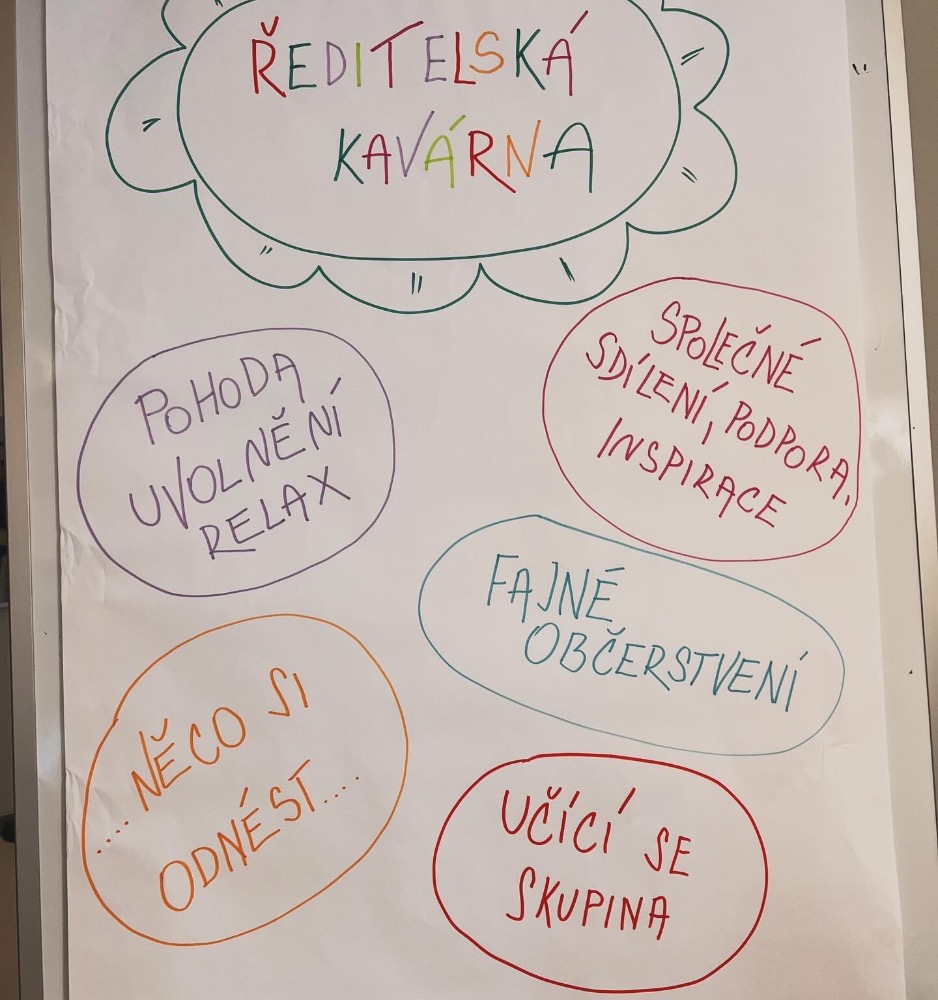 ŘEDITELSKÁ
KAVÁRNA
POHODA
UVOLNĚNÍ
RELAX
SPOLEČNÉ
SDÍLENÍ, PODPORA,
INSPIRACE
FAJNÉ
OBČERSTVENÍ
....NĚCO SI
ODNÉST....
UČÍCÍ SE
SKUPINA